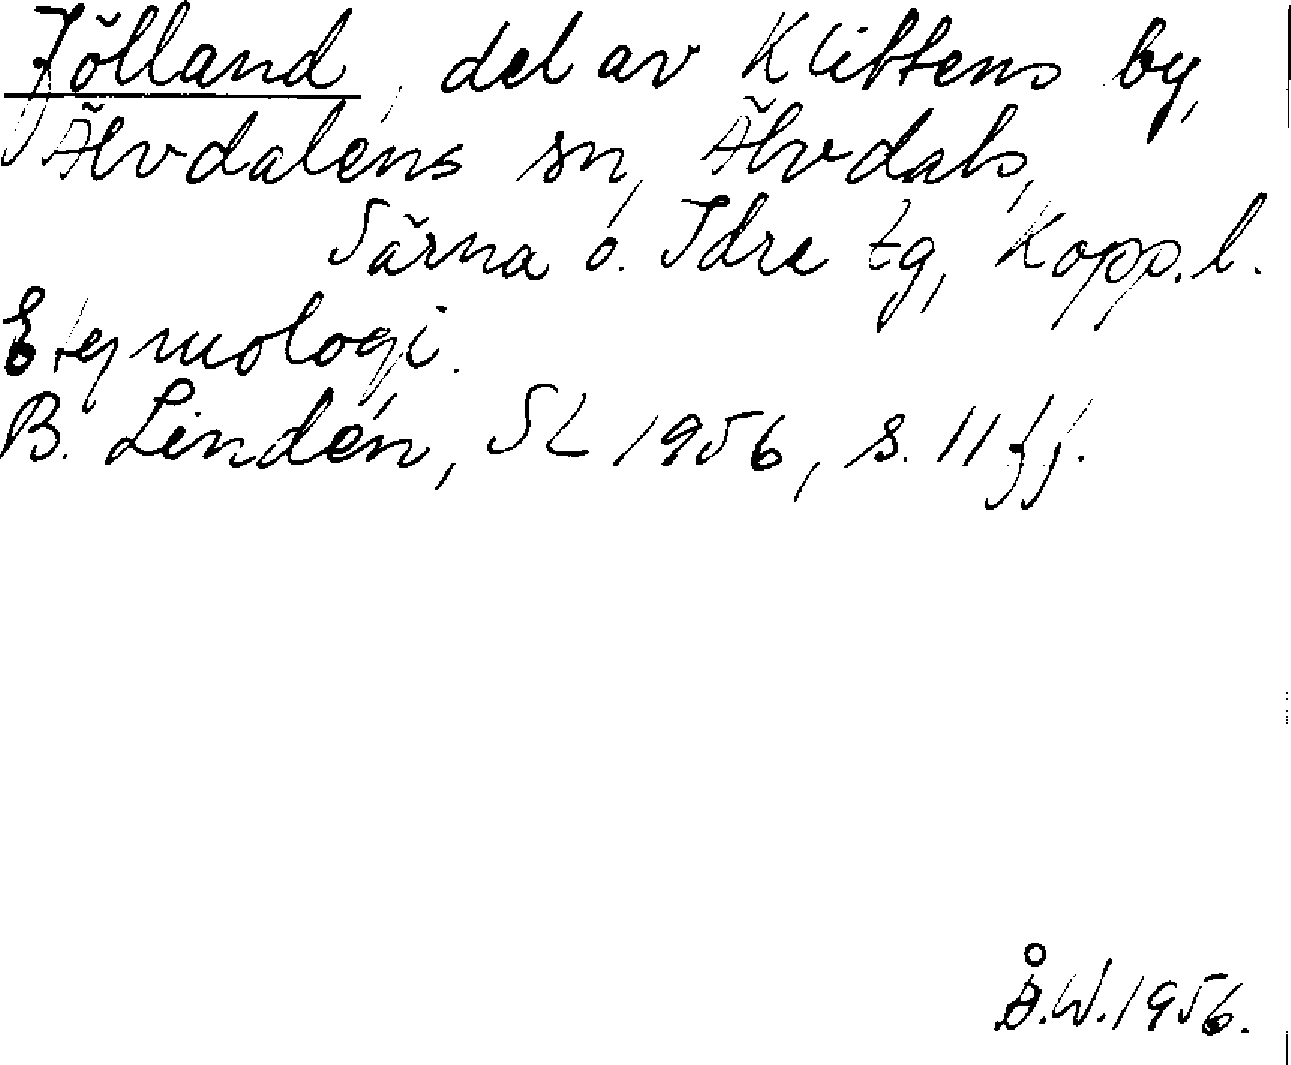 Jölland, del av Klittens by,
Älvdalens sn, Älvdals,
Särna o. Idre tg, Kopp. l.
Etymologi.
B. Lindén, SL 1956, s. 11 ff.
Å.W. 1956.